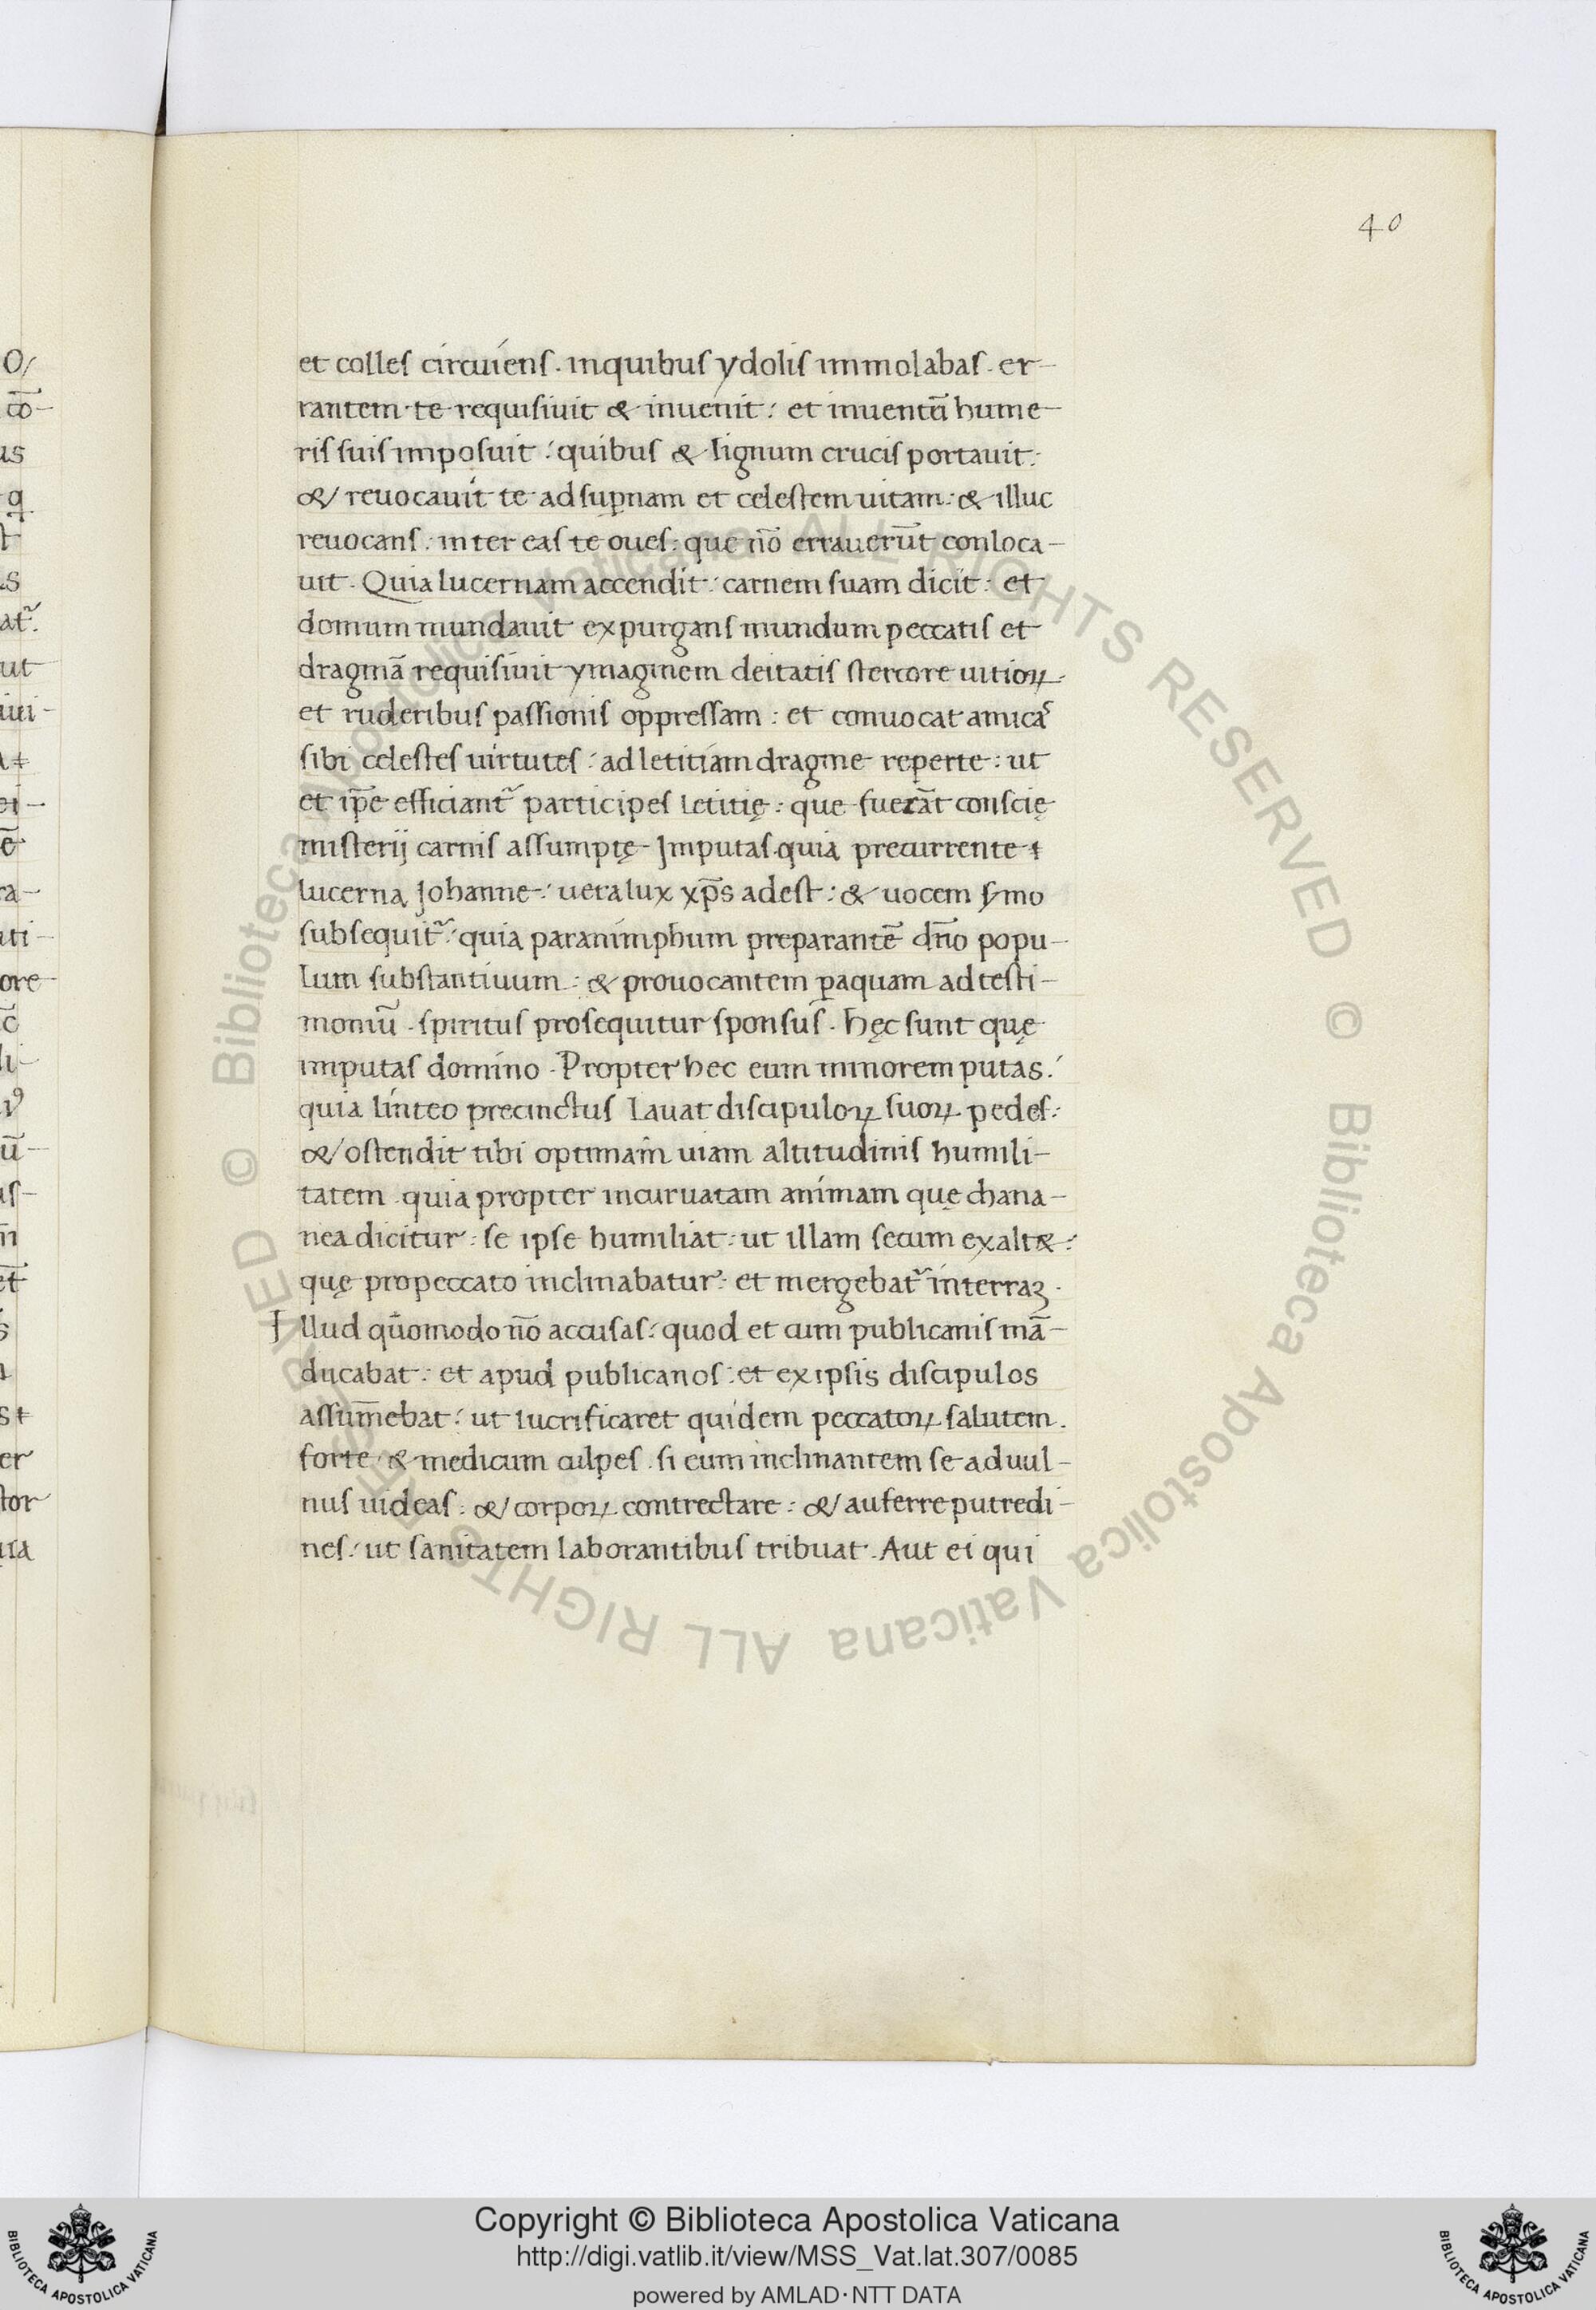 40
et colles circuiens . inquibus ydolis immolabas . er-
rantem te requisiuit & inuenit : et inuentū hume-
ris suis imposuit : quibus & signum crucis portauit :
& reuocauit te ad suꝑnam et celestem uitam : & illuc
reuocans : inter eas te oues : que nō errauerūt conloca-
uit . Quia lucernam accendit : carnem suam dicit : et
domum mundauit expurgans mundum peccatis et
dragmā requisiuit ymaginem deitatis stercore uitioꝝ
et ruderibus passionis oppressam : et conuocat amicas
sibi celestes uirtutes : ad letitiam dragme reperte : ut
et ip̄e efficiant᷑ participes letitię : que fuerāt conscię
misterij carnis assumptę . Imputas quia precurrente
lucerna Johanne : uera lux xp̄s adest : & uocem ẜmo
subsequit᷑ : quia paranimphum preparantē dn̄o popu-
lum substantiuum : & prouocantem ꝑaquam ad testi-
moniū . spiritus prosequitur sponsus . hęc sunt quę
imputas domino . Propter hec eum minorem putas :
quia linteo precinctus lauat discipuloꝝ suoꝝ pedes :
& ostendit tibi optimam uiam altitudinis humili-
tatem . quia propter incuruatam animam quę chana-
nea dicitur : se ipse humiliat : ut illam secum exalt& :
quę propeccato inclinabatur : et mergebat᷑ interraꝫ .
Illud quomodo nō accusas : quod et cum publicanis mā-
ducabat : et apud publicanos : et ex ipsis discipulos
assum̄ebat : ut lucrificaret quidem peccatoꝝ salutem .
forte & medicum culpes . si eum inclinantem se aduul-
nus uideas : & corpoꝝ contrectare : & auferre putredi-
nes : ut sanitatem laborantibus tribuat . Aut ei qui
Copyright © Biblioteca Apostolica Vaticana
http://digi.vatlib.it/view/MSS_Vat.lat.307/0085
powered by AMLAD·NTT DATA
BIBLIOTECA APOSTOLICA VATICANA
BIBLIOTECA APOSTOLICA VATICANA
© Biblioteca Apostolica Vaticana ALL RIGHTS RESERVED © Biblioteca Apostolica Vaticana ALL RIGHTS RESERVED